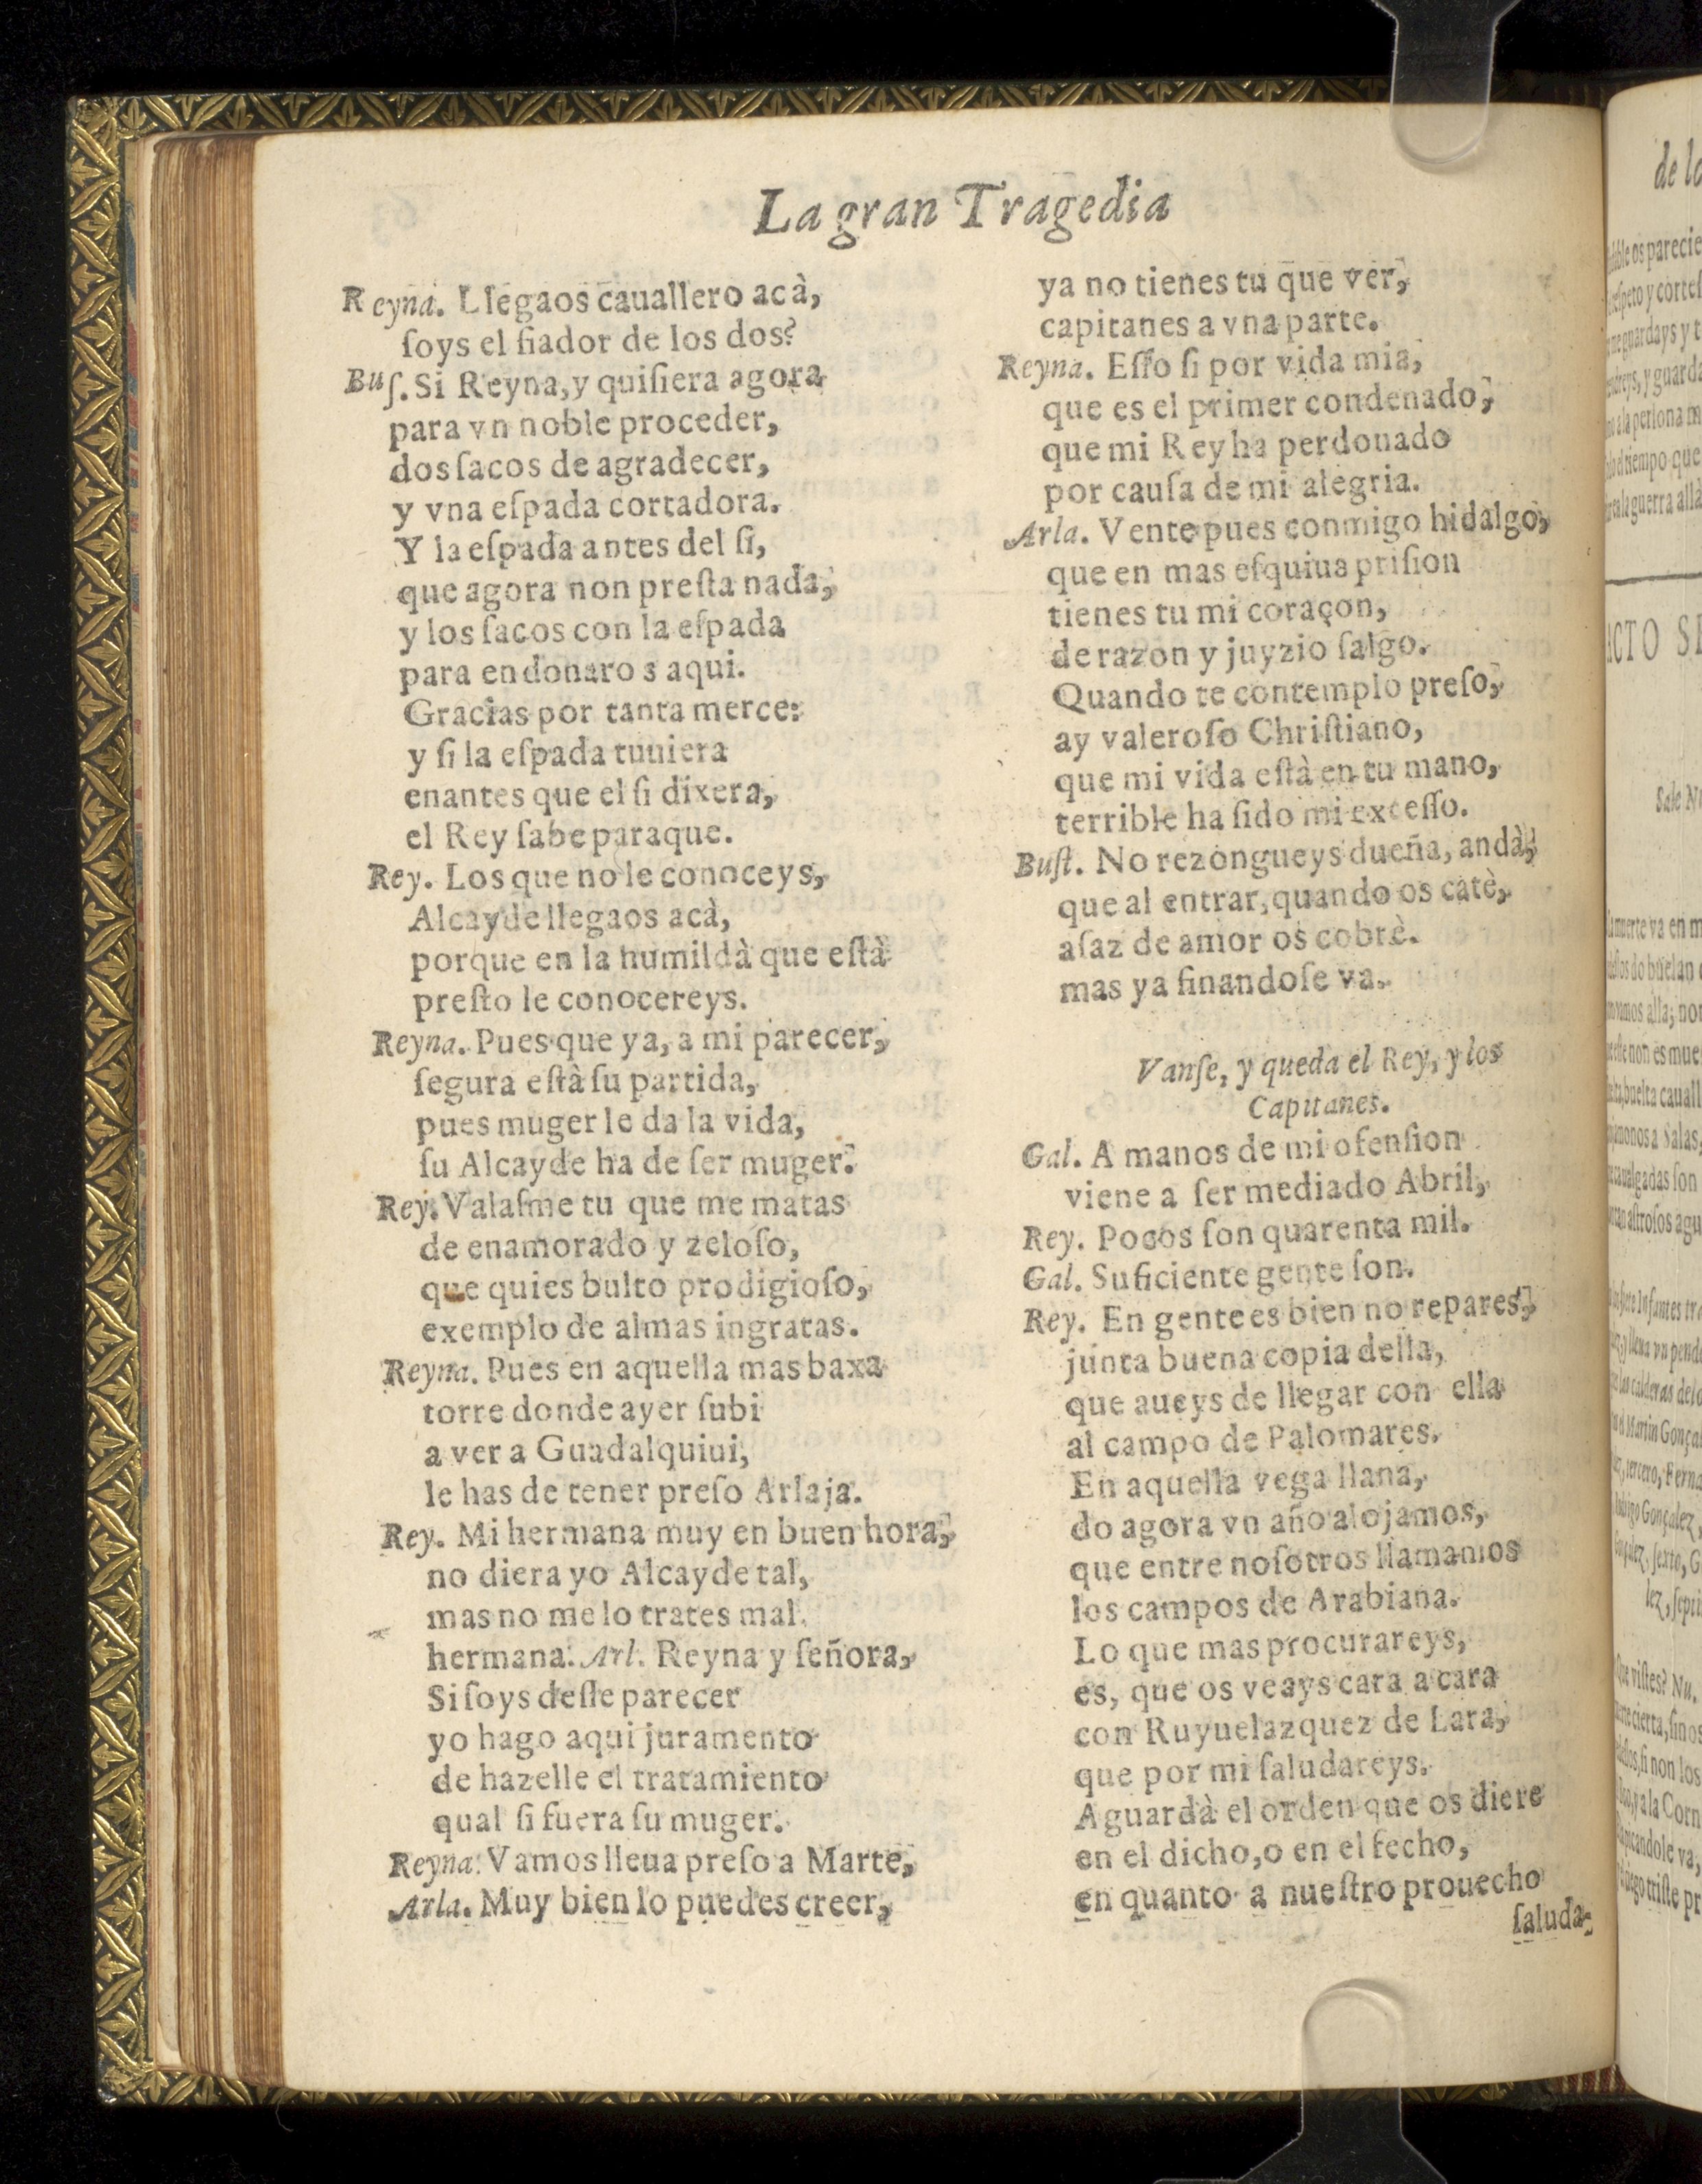 La gran Tragedia
Reyna. Llegaos cauallero acà,
ſoys el fiador de los dos?
Buſ. Si Reyna, y quiſiera agora
para vn noble proceder,
dos ſacos de agradecer,
y vna eſpada cortadora.
Y la eſpada antes del ſi,
que agora non preſta nada,
y los ſacos con la eſpada
para endonaros aqui.
Gracias por tanta merce:
y ſi la eſpada tuuiera
enantes que el ſi dixera,
el Rey ſabe paraque.
Rey. Los que no le conoceys,
Alcayde llegaos acà,
porque en la humildà que eſtà
preſto le conocereys.
Reyna. Pues que ya, a mi parecer,
ſegura eſtà ſu partida,
pues muger le da la vida,
ſu Alcayde ha de ſer muger.
Rey. Valaſme tu que me matas
de enamorado y zeloſo,
que quies bulto prodigioſo,
exemplo de almas ingratas.
Reyna. Pues en aquella mas baxa
torre donde ayer ſubi
a ver a Guadalquiui,
le has de tener preſo Arlaja.
Rey. Mi hermana muy en buen hora,
no diera yo Alcayde tal,
mas no me lo trates mal
hermana. Arl. Reyna y ſeñora,
Si ſoys deſſe parecer
yo hago aqui juramento
de hazelle el tratamiento
qual ſi fuera ſu muger.
Reyna. Vamos lleua preſo a Marte,
Arla. Muy bien lo puedes creer,
ya no tienes tu que ver,
capitanes a vna parte.
Reyna. Eſſo ſi por vida mia,
que es el primer condenado,
que mi Rey ha perdonado
por cauſa de mi alegria.
Arla. Vente pues conmigo hidalgo,
que en mas eſquiua priſion
tienes tu mi coraçon,
de razon y juyzio ſalgo.
Quando te contemplo preſo,
ay valeroſo Chriſtiano,
que mi vida eſtà en tu mano,
terrible ha ſido mi exceſſo.
Buſt. No rezongueys dueña, andà,
que al entrar, quando os catè,
aſaz de amor os cobrè.
mas ya finandoſe va.
Vanſe, y queda el Rey, y los
Capitanes.
Gal. A manos de mi ofenſion
viene a ſer mediado Abril,
Rey. Pocos ſon quarenta mil.
Gal. Suficiente gente ſon.
Rey. En gente es bien no repares,
junta buena copia della,
que aueys de llegar con ella
al campo de Palomares.
En aquella vega llana,
do agora vn año alojamos,
que entre noſotros llamamos
los campos de Arabiana.
Lo que mas procurareys,
es, que os veays cara a cara
con Ruyuelazquez de Lara,
que por mi ſaludareys.
Aguardà el orden que os diere
en el dicho, o en el fecho,
en quanto a nueſtro prouecho
ſaluda-